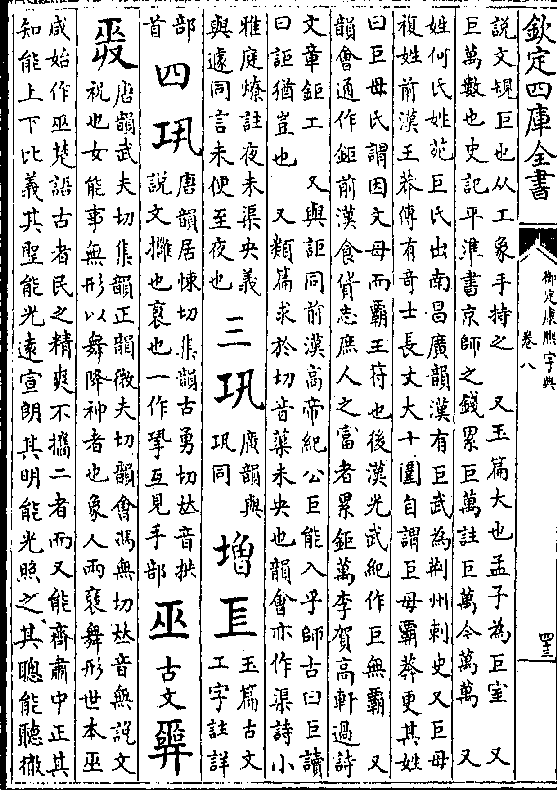 欽定四庫全書
御定康熙字典
卷八
說文規巨也从工象手持之 又玉篇大也孟子為巨室 又
巨萬數也史記平準書京師之錢累巨萬註巨萬今萬萬 又
姓何氏姓苑巨氏出南昌廣韻漢有巨武為荆州刺史又巨毋
複姓前漢王莽傳有奇士長丈大十圍自謂巨毋霸莽更其姓
曰巨母氏謂因文母而霸王符也後漢光武紀作巨無霸 又
韻會通作鉅前漢食貨志庶人之富者累鉅萬李賀高軒過詩
文章鉅工 又與詎同前漢高帝紀公巨能入乎師古曰巨讀
曰詎猶豈也 又類篇求於切音蕖未央也韻會亦作渠詩小
雅庭燎註夜未渠央義與遽同言未便至夜也 三 巩 廣韻與巩同 增 𠄷 玉篇古文工字註詳
部首 四 巩 唐韻居悚切集韻古勇切𠀤音拱說文㩴也褱也一作𢀜互見手部 巫 古文
𢍮 唐韻武夫切集韻正韻微夫切韻會馮無切𠀤音無說文祝也女能事無形以舞降神者也象人兩褎舞形世本巫
咸始作巫楚語古者民之精爽不攜二者而又能齊肅中正其
知能上下比義其聖能光遠宣朗其明能光照之其聰能聽徹